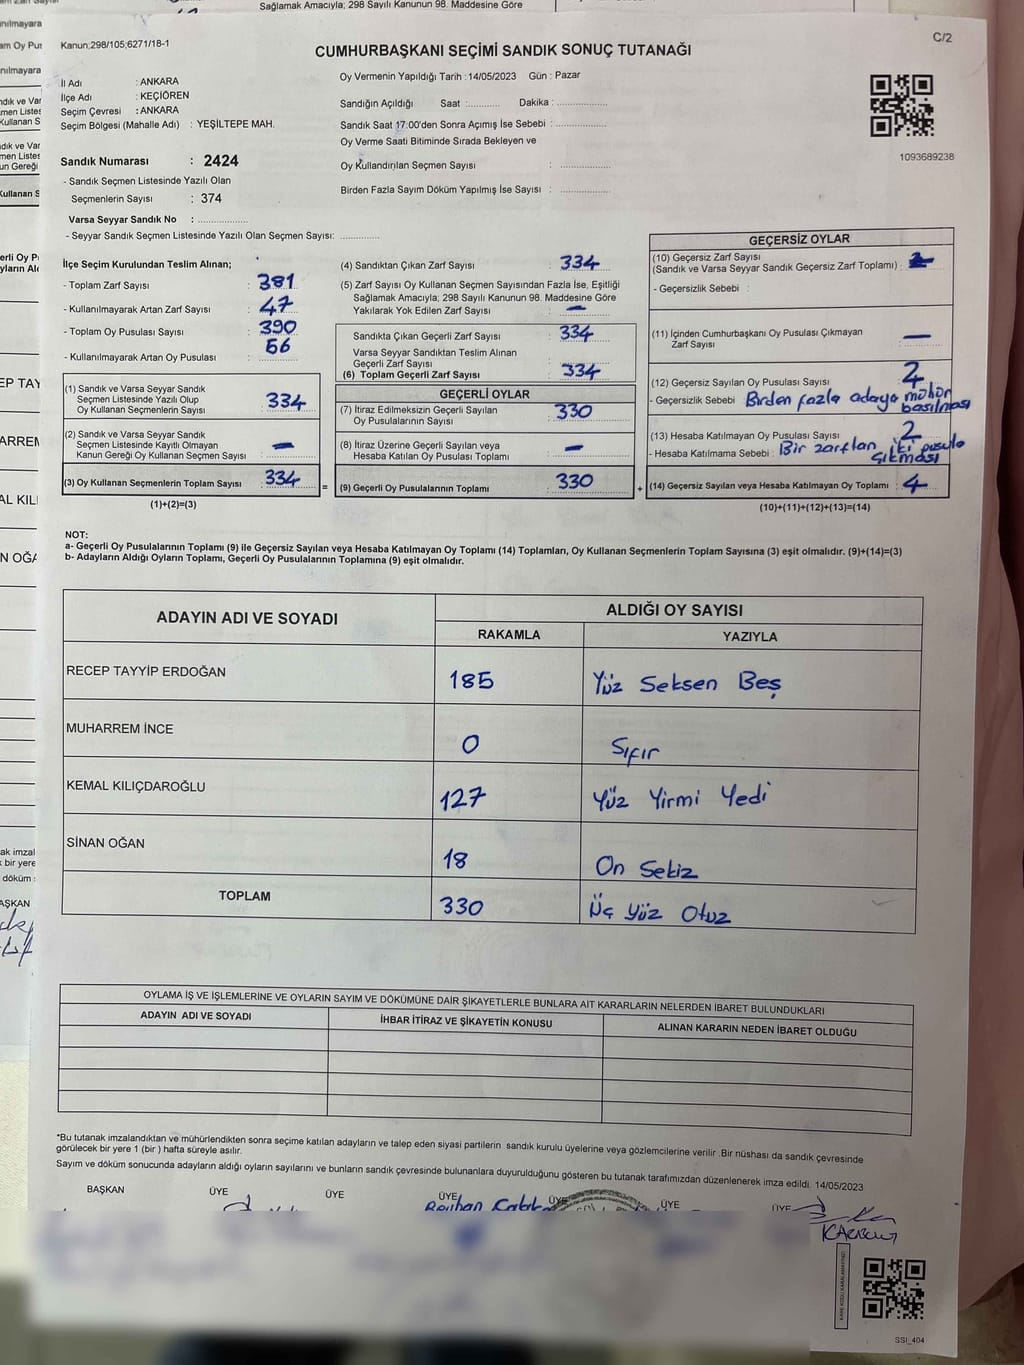 Sağlamak Amacıyla; 298 Sayılı Kanunun 98. Maddesine Göre
Kanun;298/105;6271/18-1
C/2
CUMHURBAŞKANI SEÇİMİ SANDIK SONUÇ TUTANAĞI
İl Adı : ANKARA
İlçe Adı : KEÇİÖREN
Seçim Çevresi : ANKARA
Seçim Bölgesi (Mahalle Adı) : YEŞİLTEPE MAH.
Oy Vermenin Yapıldığı Tarih : 14/05/2023 Gün : Pazar
Sandığın Açıldığı Saat :........... Dakika : ....................
Sandık Saat 17:00'den Sonra Açımış İse Sebebi : ....................
Oy Verme Saati Bitiminde Sırada Bekleyen ve
Oy Kullandırılan Seçmen Sayısı : ....................
Birden Fazla Sayım Döküm Yapılmış İse Sayısı : ....................
1093689238
Sandık Numarası : 2424
- Sandık Seçmen Listesinde Yazılı Olan
Seçmenlerin Sayısı : 374
Varsa Seyyar Sandık No : ....................
- Seyyar Sandık Seçmen Listesinde Yazılı Olan Seçmen Sayısı: ...............
İlçe Seçim Kurulundan Teslim Alınan;
- Toplam Zarf Sayısı : 381
- Kullanılmayarak Artan Zarf Sayısı : 47
- Toplam Oy Pusulası Sayısı : 390
- Kullanılmayarak Artan Oy Pusulası : 56
(1) Sandık ve Varsa Seyyar Sandık
Seçmen Listesinde Yazılı Olup
Oy Kullanan Seçmenlerin Sayısı : 334
(2) Sandık ve Varsa Seyyar Sandık
Seçmen Listesinde Kayıtlı Olmayan
Kanun Gereği Oy Kullanan Seçmen Sayısı : —
(3) Oy Kullanan Seçmenlerin Toplam Sayısı : 334
(1)+(2)=(3)
=
(4) Sandıktan Çıkan Zarf Sayısı : 334
(5) Zarf Sayısı Oy Kullanan Seçmen Sayısından Fazla İse, Eşitliği
Sağlamak Amacıyla; 298 Sayılı Kanunun 98. Maddesine Göre
Yakılarak Yok Edilen Zarf Sayısı : —
Sandıkta Çıkan Geçerli Zarf Sayısı : 334
Varsa Seyyar Sandıktan Teslim Alınan
Geçerli Zarf Sayısı
(6) Toplam Geçerli Zarf Sayısı : 334
GEÇERLİ OYLAR
(7) İtiraz Edilmeksizin Geçerli Sayılan
Oy Pusulalarının Sayısı : 330
(8) İtiraz Üzerine Geçerli Sayılan veya
Hesaba Katılan Oy Pusulası Toplamı : —
(9) Geçerli Oy Pusulalarının Toplamı : 330
+
GEÇERSİZ OYLAR
(10) Geçersiz Zarf Sayısı
(Sandık ve Varsa Seyyar Sandık Geçersiz Zarf Toplamı) :
- Geçersizlik Sebebi :
(11) İçinden Cumhurbaşkanı Oy Pusulası Çıkmayan
Zarf Sayısı : —
(12) Geçersiz Sayılan Oy Pusulası Sayısı : 2
- Geçersizlik Sebebi : Birden fazla adaya mühür
basılması
(13) Hesaba Katılmayan Oy Pusulası Sayısı : 2
- Hesaba Katılmama Sebebi : Bir zarftan iki pusula
çıkması
(14) Geçersiz Sayılan veya Hesaba Katılmayan Oy Toplamı : 4
(10)+(11)+(12)+(13)=(14)
NOT:
a- Geçerli Oy Pusulalarının Toplamı (9) ile Geçersiz Sayılan veya Hesaba Katılmayan Oy Toplamı (14) Toplamları, Oy Kullanan Seçmenlerin Toplam Sayısına (3) eşit olmalıdır. (9)+(14)=(3)
b- Adayların Aldığı Oyların Toplamı, Geçerli Oy Pusulalarının Toplamına (9) eşit olmalıdır.
ADAYIN ADI VE SOYADI
ALDIĞI OY SAYISI
RAKAMLA YAZIYLA
RECEP TAYYİP ERDOĞAN 185 Yüz Seksen Beş
MUHARREM İNCE 0 Sıfır
KEMAL KILIÇDAROĞLU 127 Yüz Yirmi Yedi
SİNAN OĞAN 18 On Sekiz
TOPLAM 330 Üç Yüz Otuz
OYLAMA İŞ VE İŞLEMLERİNE VE OYLARIN SAYIM VE DÖKÜMÜNE DAİR ŞİKAYETLERLE BUNLARA AİT KARARLARIN NELERDEN İBARET BULUNDUKLARI
ADAYIN ADI VE SOYADI İHBAR İTİRAZ VE ŞİKAYETİN KONUSU ALINAN KARARIN NEDEN İBARET OLDUĞU
*Bu tutanak imzalandıktan ve mühürlendikten sonra seçime katılan adayların ve talep eden siyasi partilerin sandık kurulu üyelerine veya gözlemcilerine verilir .Bir nüshası da sandık çevresinde
görülecek bir yere 1 (bir ) hafta süreyle asılır.
Sayım ve döküm sonucunda adayların aldığı oyların sayılarını ve bunların sandık çevresinde bulunanlara duyurulduğunu gösteren bu tutanak tarafımızdan düzenlenerek imza edildi. 14/05/2023
BAŞKAN ÜYE ÜYE ÜYE ÜYE ÜYE ÜYE
SSI_404